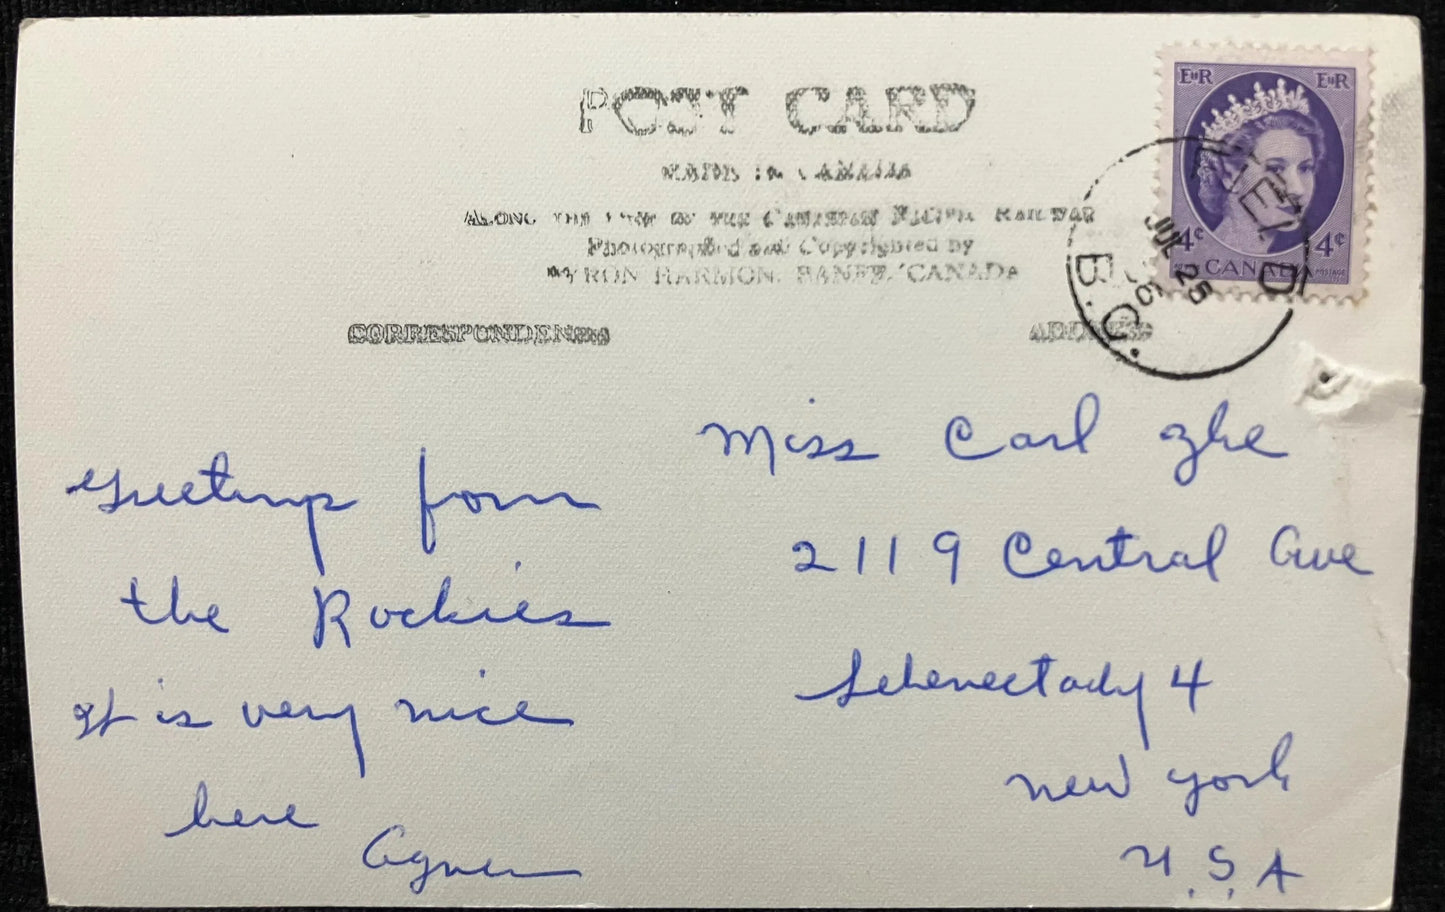 POST CARD
MADE IN CANADA
ALONG THE LINE OF THE CANADIAN PACIFIC RAILWAY
Photographed and Copyrighted by
BYRON HARMON, BANFF, CANADA
CORRESPONDENCE
ADDRESS
EIIR
EIIR
4¢
4¢
CANADA
POSTAGE
FIELD
JUL 25
B.C.
Greetings from
the Rockies
It is very nice
here
Agnes
Miss Carl
2119 Central Ave
Schenectady 4
New York
U.S.A